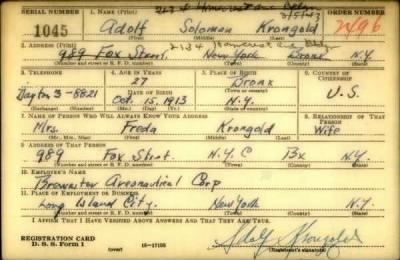 SERIAL NUMBER 1. NAME (Print) ORDER NUMBER
1045 Adolf Solomon Krongold 2496
(First) (Middle) (Last)
2. ADDRESS (Print)
989 Fox Street. New York Bronx N.Y.
(Number and street or R. F. D. number) (Town) (County) (State)
3. TELEPHONE 4. AGE IN YEARS 5. PLACE OF BIRTH 6. COUNTRY OF CITIZENSHIP
27 Bronx
Dayton 3-8821 DATE OF BIRTH (Town or county) U.S.
Oct. 15, 1913 N.Y.
(Exchange) (Number) (Mo.) (Day) (Yr.) (State or country)
7. NAME OF PERSON WHO WILL ALWAYS KNOW YOUR ADDRESS 8. RELATIONSHIP OF THAT PERSON
Mrs. Freda Krongold Wife
(Mr., Mrs., Miss) (First) (Middle) (Last)
9. ADDRESS OF THAT PERSON
989 Fox Street. N.Y.C Bx N.Y.
(Number and street or R. F. D. number) (Town) (County) (State)
10. EMPLOYER'S NAME
Brewster Aeronautical Corp
11. PLACE OF EMPLOYMENT OR BUSINESS
Long Island City. New York N.Y.
(Number and street or R. F. D. number) (Town) (County) (State)
I AFFIRM THAT I HAVE VERIFIED ABOVE ANSWERS AND THAT THEY ARE TRUE.
REGISTRATION CARD
D. S. S. Form 1 (over) 16-17105 Adolf Krongold